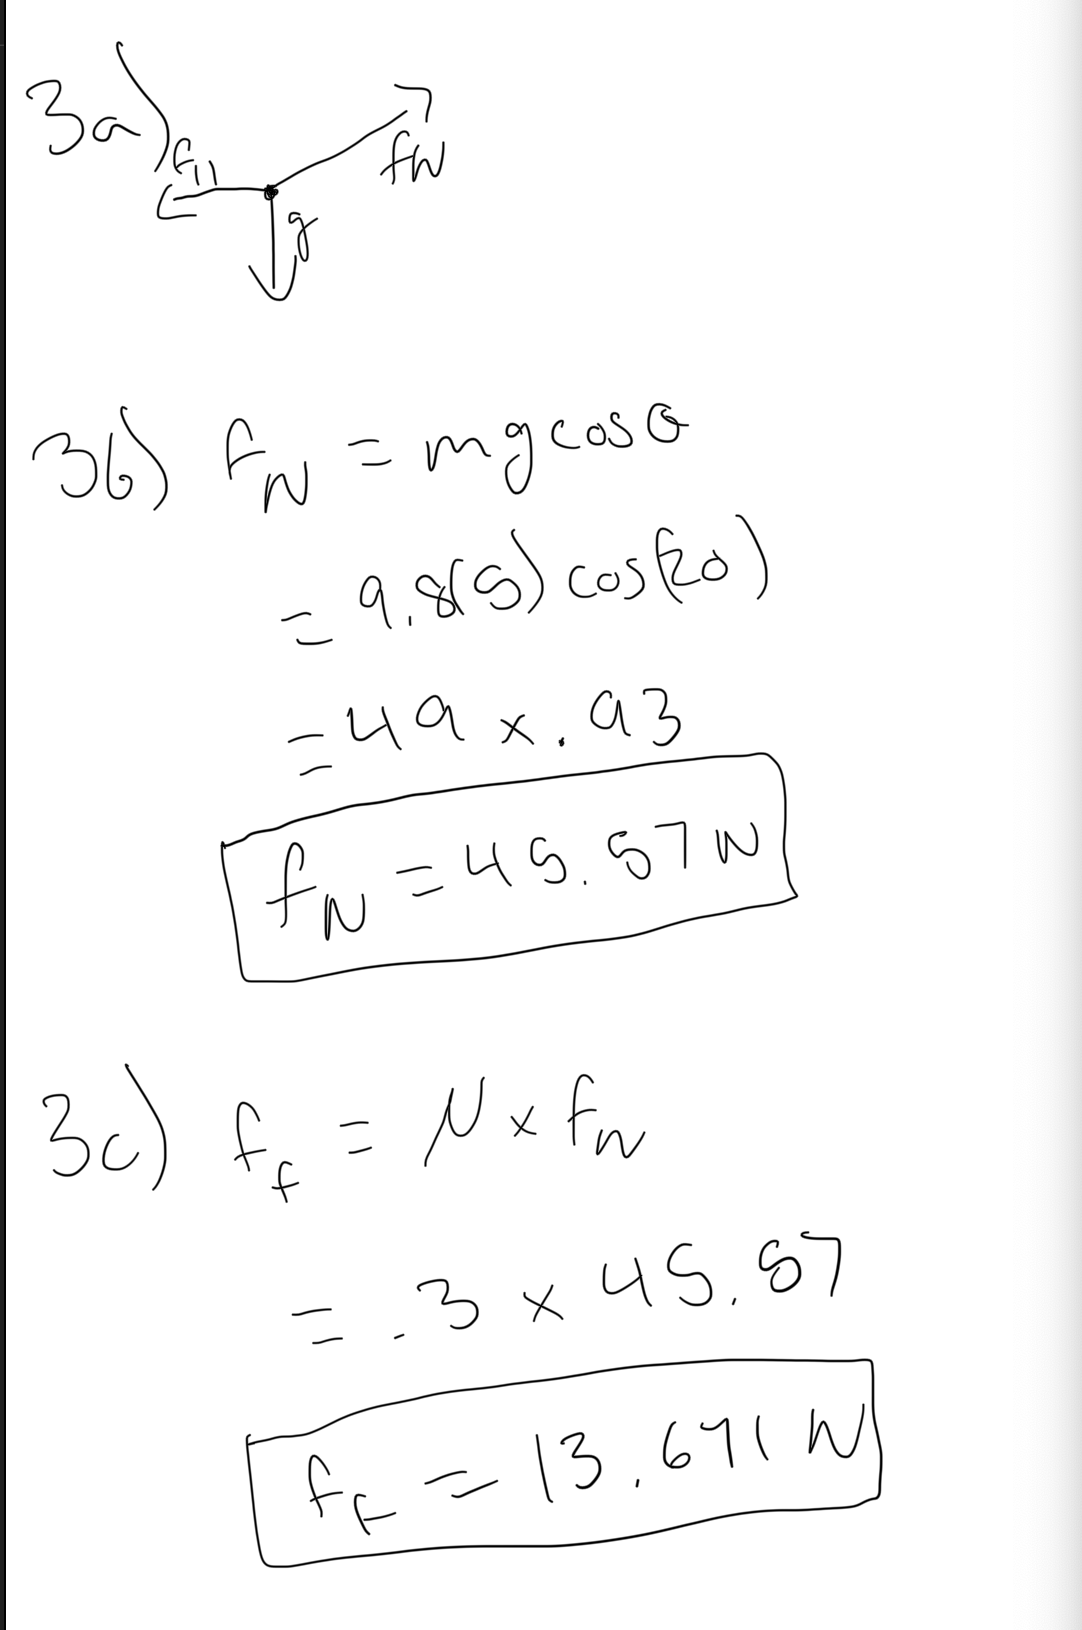 3a)
f||
fN
g
3b) f_N = mg cos θ
= 9.8(5) cos(20)
= 49 x .93
f_N = 45.57 N
3c) f_f = μ x f_N
= .3 x 45.57
f_f = 13.671 N